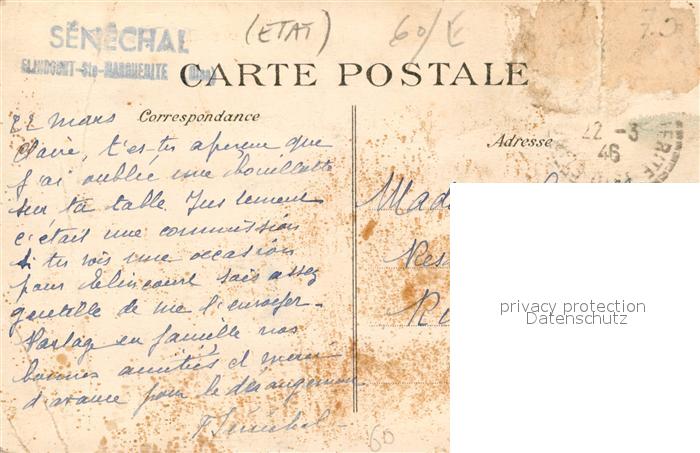 SÉNÉCHAL
ELINCOURT-Ste-MARGUERITE (Oise)
(ETAT)
60/E
70
CARTE POSTALE
Correspondance
Adresse
22 mars
t'es-tu aperçue que
j'ai oublié une bouillotte
sur ta table. Justement
c'était une commission
si tu vois une occasion
pour Elincourt sois assez
gentille de me l'envoyer.
Partage en famille nos
bonnes amitiés et merci
d'avance pour le dérangement
F Sénéchal
60
22 -3
46
Mad
Res
privacy protection
Datenschutz